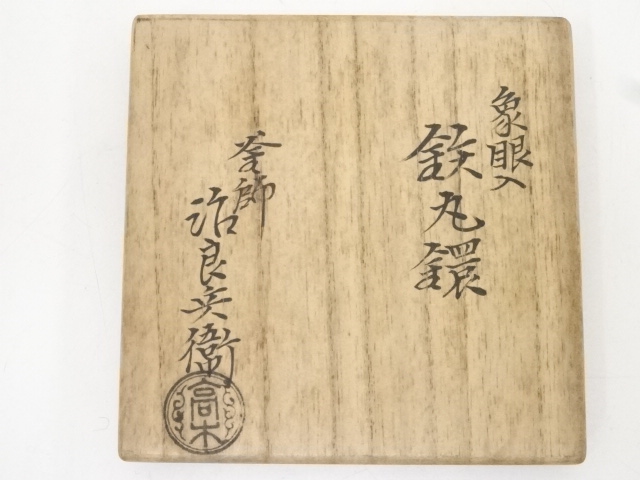 象眼入
鉄丸鐶
釜師
治良兵衛
高木